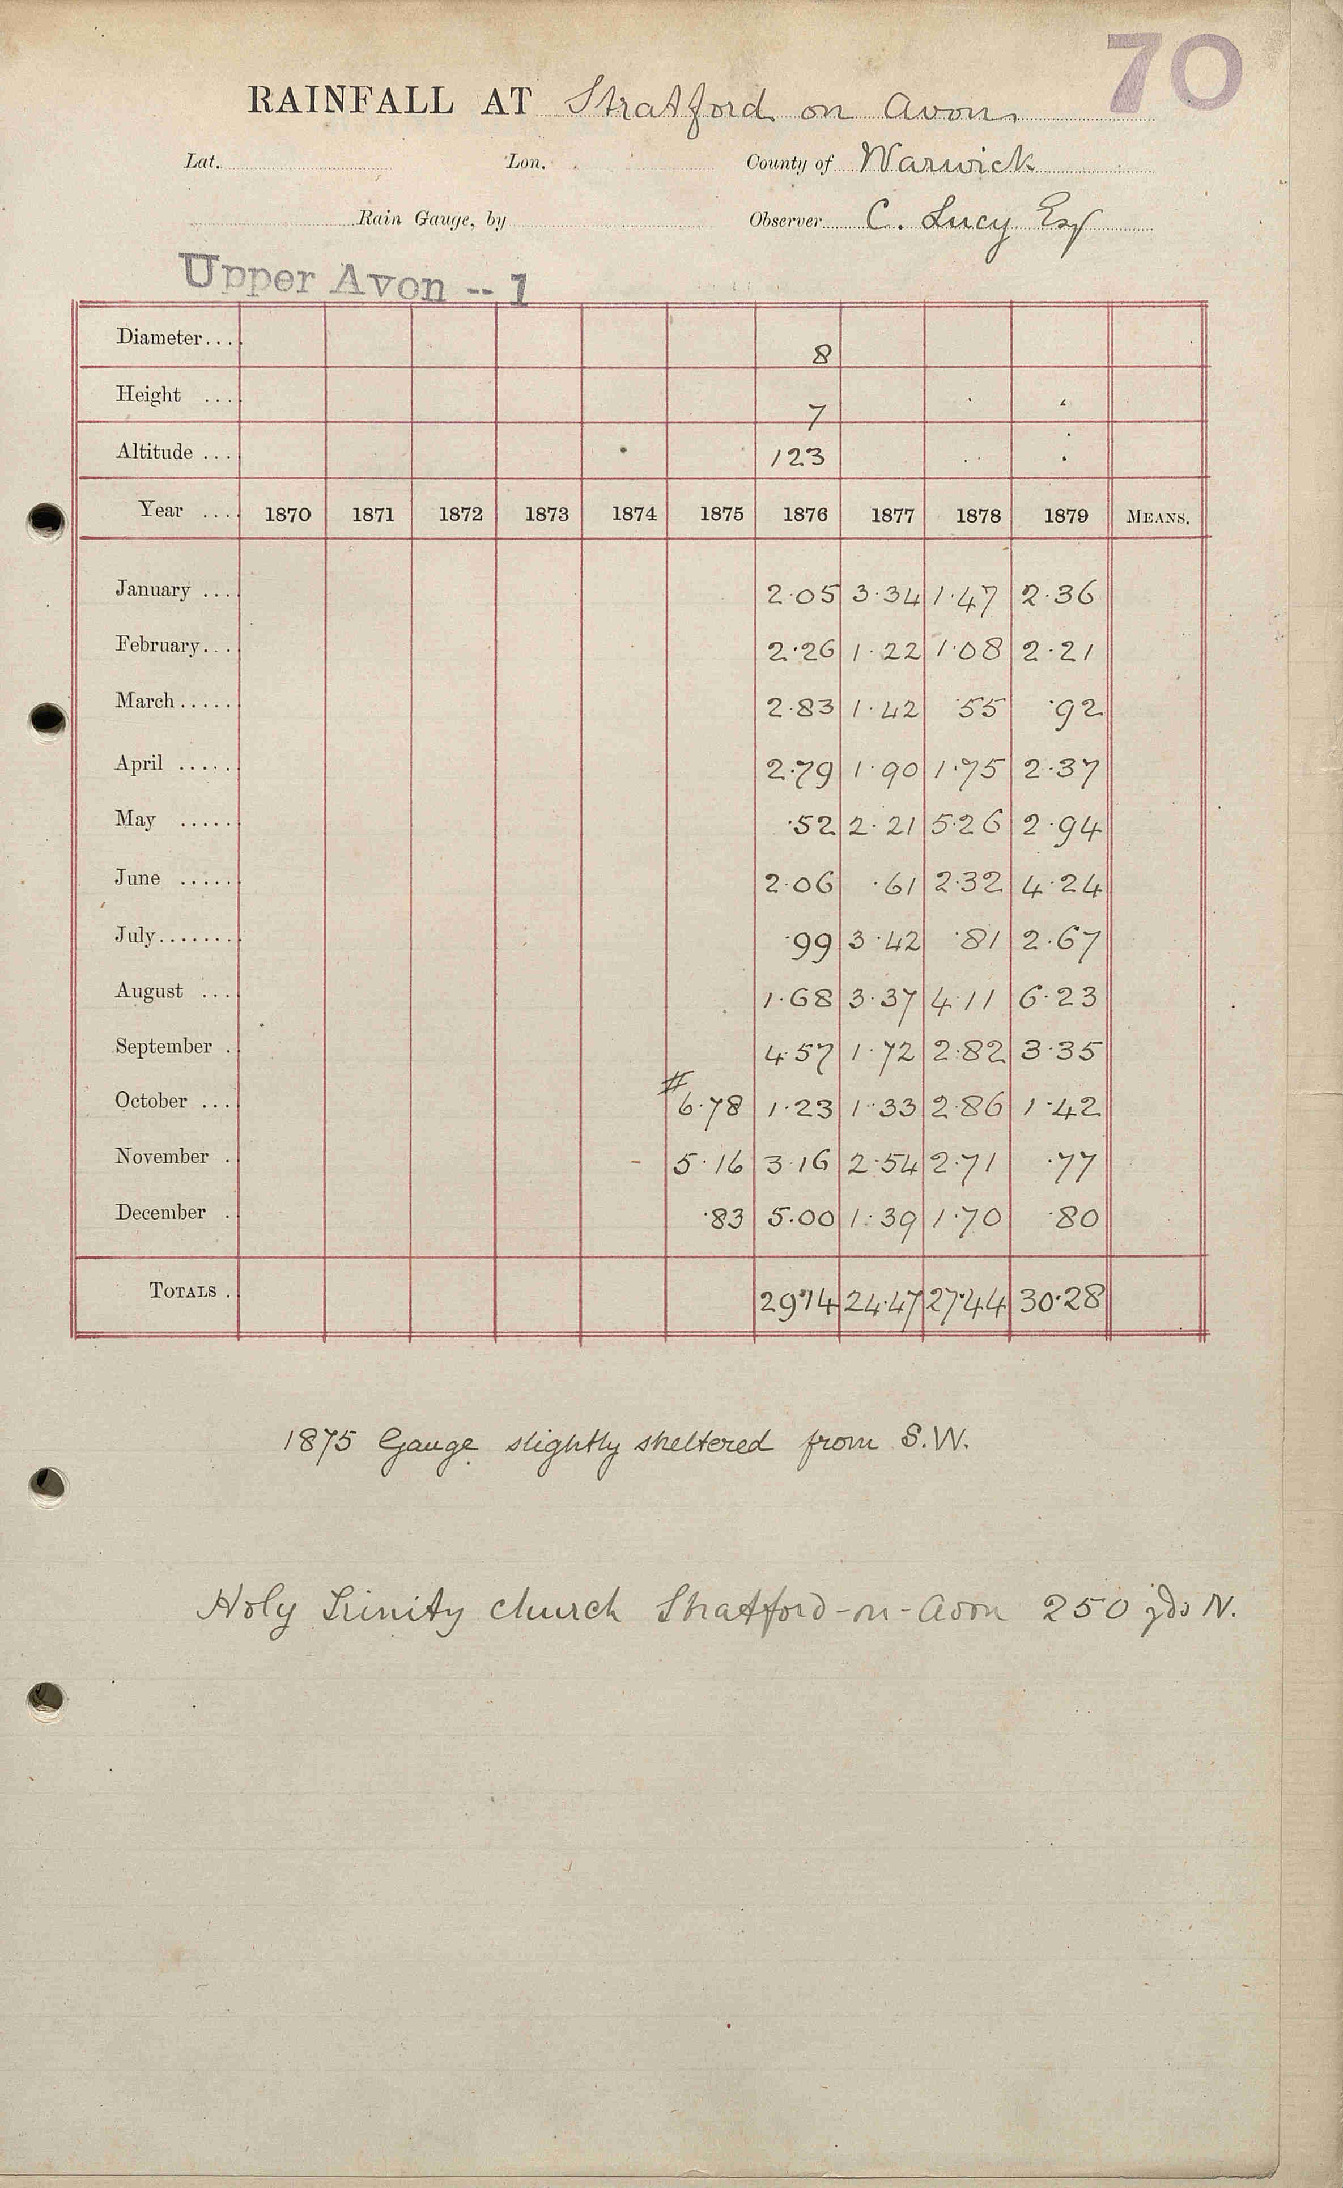 70
RAINFALL AT Stratford on Avon.
Lat. Lon. County of Warwick
Rain Gauge, by Observer C. Lucy Esq
Upper Avon -- 1
Diameter... 8
Height ... 7
Altitude ... 123
Year .... 1870 1871 1872 1873 1874 1875 1876 1877 1878 1879 MEANS.
January ... 2.05 3.34 1.47 2.36
February... 2.26 1.22 1.08 2.21
March..... 2.83 1.42 .55 .92
April ..... 2.79 1.90 1.75 2.37
May ..... .52 2.21 5.26 2.94
June ..... 2.06 .61 2.32 4.24
July....... .99 3.42 .81 2.67
August ... 1.68 3.37 4.11 6.23
September . 4.57 1.72 2.82 3.35
#
October ... 6.78 1.23 1.33 2.86 1.42
November . 5.16 3.16 2.54 2.71 .77
December . .83 5.00 1.39 1.70 .80
TOTALS . 29.14 24.47 27.44 30.28
1875 Gauge slightly sheltered from S.W.
Holy Trinity church Stratford-on-Avon 250 yds N.